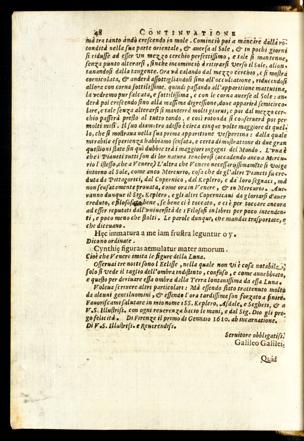 48 CONTINVATIONE
mà tre tanto andò crescendo in mole. Cominciò poi a mancare dalla ro-
tondità nella sua parte orientale, & auersa al Sole, & in pochi giorni
si ridusse ad esser vn mezzo cerchio perfettissimo, e tale si mantenne,
senza punto alterarsi, finche incominciò a ritirarsi verso il Sole, allon-
tanandosi dalla tangente. Ora và calando dal mezzo cerchio, e si mostra
cornicolata, & anderà assottigliandosi sino all'occultazione, riducendosi
allora con corna sottilissime, quindi passando all'apparizione mattutina,
la vedremo pur falcata, e sottilissima, e con le corna auerse al Sole: an-
derà poi crescendo sino alla massima digressione, doue apparirà semicir-
colare, e tale senza alterarsi si manterrà molti giorni, e poi dal mezzo cer-
chio passerà presto al tutto tondo, e così rotonda si conseruerà poi per
molti mesi. Il suo diametro adesso è circa cinque volte maggiore di quello,
che si mostraua nella sua prima apparizione Vespertina: dalla quale
mirabile esperienza habbiamo sensata, e certa dimostrazione di due gran
questioni state sin quì dubbie trà i maggiori ingegni del Mondo. L'vna è
che i Pianeti tutti sono di lor natura tenebrosi (accadendo anco a Mercu-
rio l'istesso, che a Venere.) L'altra che Venere necessariissimamente si volge
intorno al Sole, come anco Mercurio, cosa che de gl'altri Pianeti fu cre-
duta da Pittagorici, dal Copernico, dal Keplero, e da' loro seguaci, mà
non sensatamente prouata, come ora in Venere, & in Mercurio. Aue-
ranno dunque il Sig. Keplero, e gli altri Copernicani da gloriarsi d'auer
creduto, e filosofato bene, se bene ci è toccato, e ci è per toccare ancora
ad esser reputati dall'vniuersità de i Filosofi in libris per poco intenden-
ti, e poco meno che stolti. Le parole dunque, che mandai trasportate, e
che diceuano.
Hęc immatura a me iam frustra leguntur o y.
Dicono ordinate.
Cynthię figuras aemulatur mater amorum.
Cioè che Venere imita le figure della Luna.
Osseruai tre notti sono l'Eclisse, nella quale non vi è cosa notabile,
solo si vede il taglio dell'ombra indistinto, confuso, e come annebbiato,
e questo per deriuare essa ombra dalla Terra lontanissima da essa Luna.
Voleua scriuere altri particolari: Mà essendo stato trattenuto molto
da alcuni gentilhuomini, & essendo l'ora tardissima son forzato a finire.
Fauoriscami salutare in mio nome i SS. Keplero, Asdale, e Segheti, & a
V. S. Illustriss. con ogni reuerenza bacio le mani, e dal Sig. Dio gli pre-
go felicità. Di Firenze il primo di Gennaro 1610. ab incarnatione.
Di V. S. Illustriss. e Reuerendiss.
Seruitore obbligatiss.
Galileo Galilei.
Quid